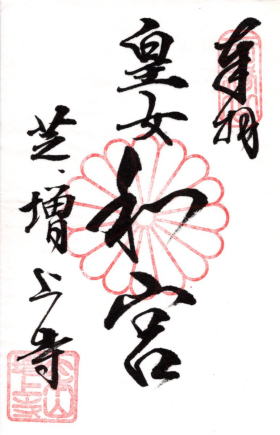 奉拝
皇女
和宮
芝、増上寺